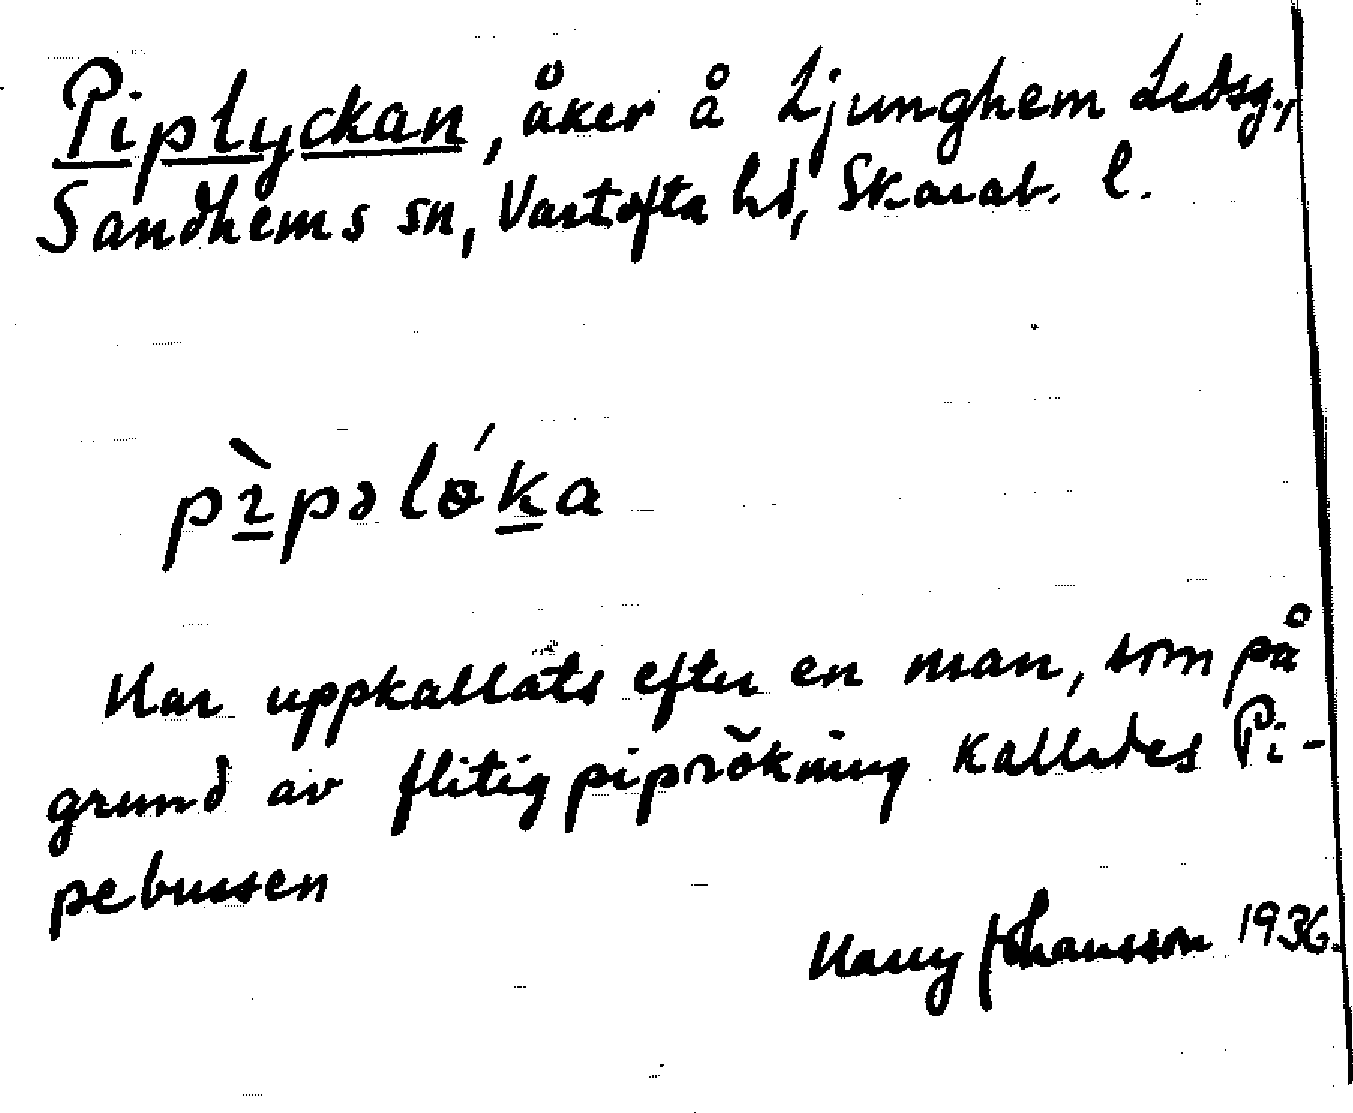 Piplyckan, åker å Ljunghem Ledsg.,
Sandhems sn, Vartofta hd, Skarab. l.
pɪ̀pəló̵ka
Har uppkallats efter en man, som på
grund av flitig piprökning kallades Pi-
pebussen
Harry Johansson 1936.